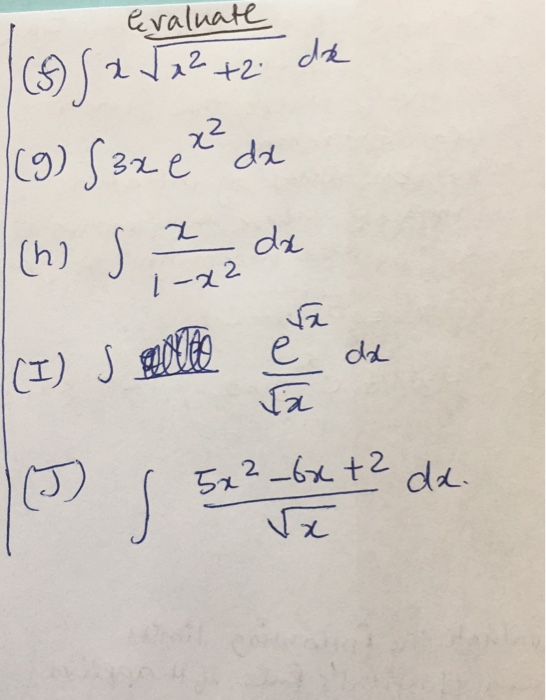 Evaluate
(f) ∫ x √(x² + 2) dx
(g) ∫ 3x e^(x²) dx
(h) ∫ x / (1 - x²) dx
(I) ∫ e^(√x) / √x dx
(J) ∫ (5x² - 6x + 2) / √x dx.